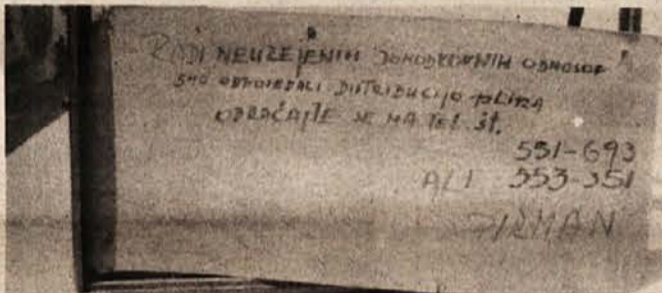 RADI NEUREJENIH DOHODKOVNIH ODNOSOV
SMO ODPOVEDALI DISTRIBUCIJO PLINA
OBRAČAJTE SE NA TEL. ŠT.
551-693
ALI 553-351
FIRMAN